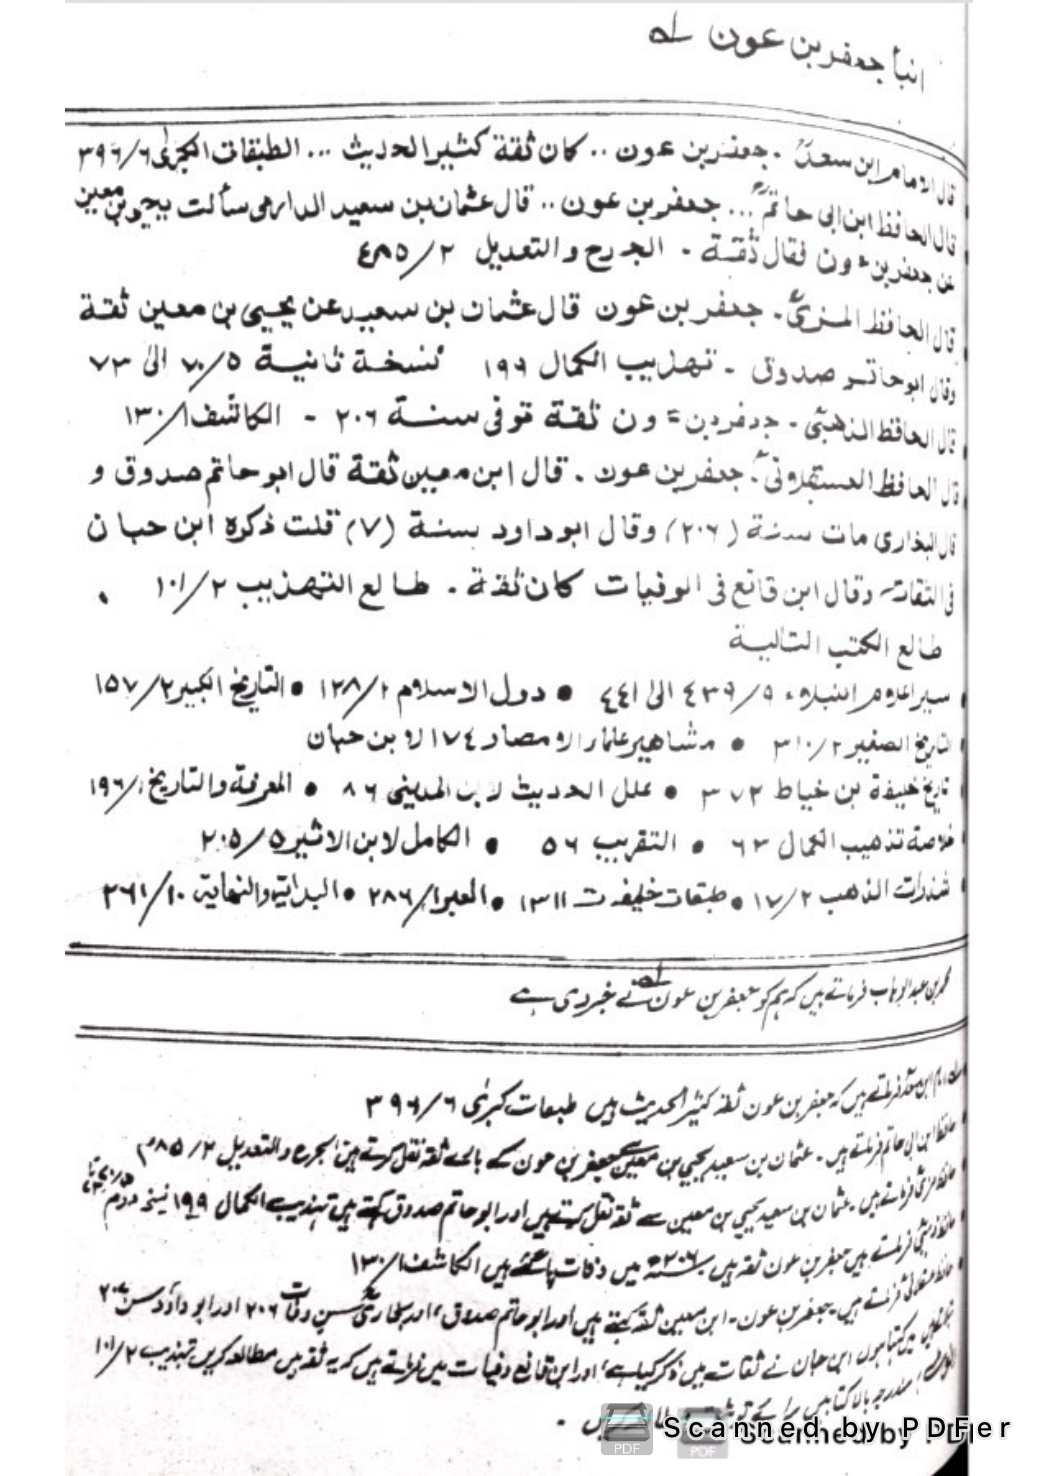 انبأ جعفر بن عون لـه
قال الامام ابن سعدؒ . جعفر بن عون .. كان ثقة كثير الحديث ... الطبقات الكبرىٰ ٦/٣٩٦
قال الحافظ ابن ابى حاتمؒ ... جعفر بن عون .. قال عثمان بن سعيد الدارمى سألت يحيى بن معين
عن جعفر بن عون فقال ثقة . الجرح والتعديل ٢/٤٨٥
قال الحافظ المزىؒ . جعفر بن عون قال عثمان بن سعيد عن يحيى بن معين ثقة
وقال ابو حاتم صدوق . تهذيب الكمال ١٩٩ نسخة ثانية ٥/٧٠ الى ٧٣
قال الحافظ الذهبىؒ . جعفر بن عون ثقة توفى سنة ٢٠٦ - الكاشف ١/١٣٠
قال الحافظ العسقلانىؒ . جعفر بن عون . قال ابن معين ثقة قال ابو حاتم صدوق و
قال البخارى مات سنة (٢٠٦) وقال ابو داود بسنة (٧) قلت ذكره ابن حبان
فى الثقات وقال ابن قانع فى الوفيات كان ثقة . طالع التهذيب ٢/١٠١
طالع الكتب التالية
• سير اعلام النبلاء ٩/٤٣٩ الى ٤٤١ • دول الاسلام ١/١٢٨ • التاريخ الكبير ٢/١٥٧
• التاريخ الصغير ٢/٣١٠ • مشاهير علماء الامصار ١٧٤ لابن حبان
• تاريخ خليفة بن خياط ٣٧٢ • علل الحديث لابن المدينى ٨٦ • المعرفة والتاريخ ١/١٩٦
• خلاصة تذهيب الكمال ٦٣ • التقريب ٥٦ • الكامل لابن الاثير ٥/٢٠٥
• شذرات الذهب ٢/١٧ • طبقات خليفه ت ١٣١١ • العبر ١/٢٨٦ • البداية والنهاية ١٠/٢٦١
محمد بن عبد الوہاب فرماتے ہیں کہ ہم کو جعفر بن عون لـه نے خبر دی ہے
لـه امام ابن سعدؒ فرماتے ہیں کہ جعفر بن عون ثقہ کثیر الحدیث ہیں طبقات کبریٰ ٦/٣٩٦
حافظ ابن ابی حاتم فرماتے ہیں . عثمان بن سعید یحیی بن معین سے جعفر بن عون کے بارے ثقہ نقل کرتے ہیں الجرح والتعدیل ٢/٤٨٥
حافظ مزیؒ فرماتے ہیں . عثمان بن سعید یحیی بن معین سے ثقہ نقل کرتے ہیں اور ابو حاتم صدوق کہتے ہیں تہذیب الکمال ١٩٩ نسخہ دوم ٥/٧٠ تا ٧٣
حافظ ذہبیؒ فرماتے ہیں جعفر بن عون ثقہ ہیں سنہ ٢٠٦ میں وفات پا گئے ہیں الکاشف ١/١٣٠
حافظ عسقلانیؒ فرماتے ہیں . جعفر بن عون . ابن معین ثقہ کہتے ہیں اور ابو حاتم صدوق، اور بخاریؒ سن وفات ٢٠٦ اور ابو داؤد سن ٢٠٧
بتلاتے ہیں میں کہتا ہوں ابن حبان نے ثقات میں ذکر کیا ہے، اور ابن قانع وفیات میں فرماتے ہیں کہ یہ ثقہ ہیں مطالعہ کریں تہذیب ٢/١٠١
مندرجہ بالا کتابیں
Scanned by PDFer
Scanned by PD
PDF
PDF